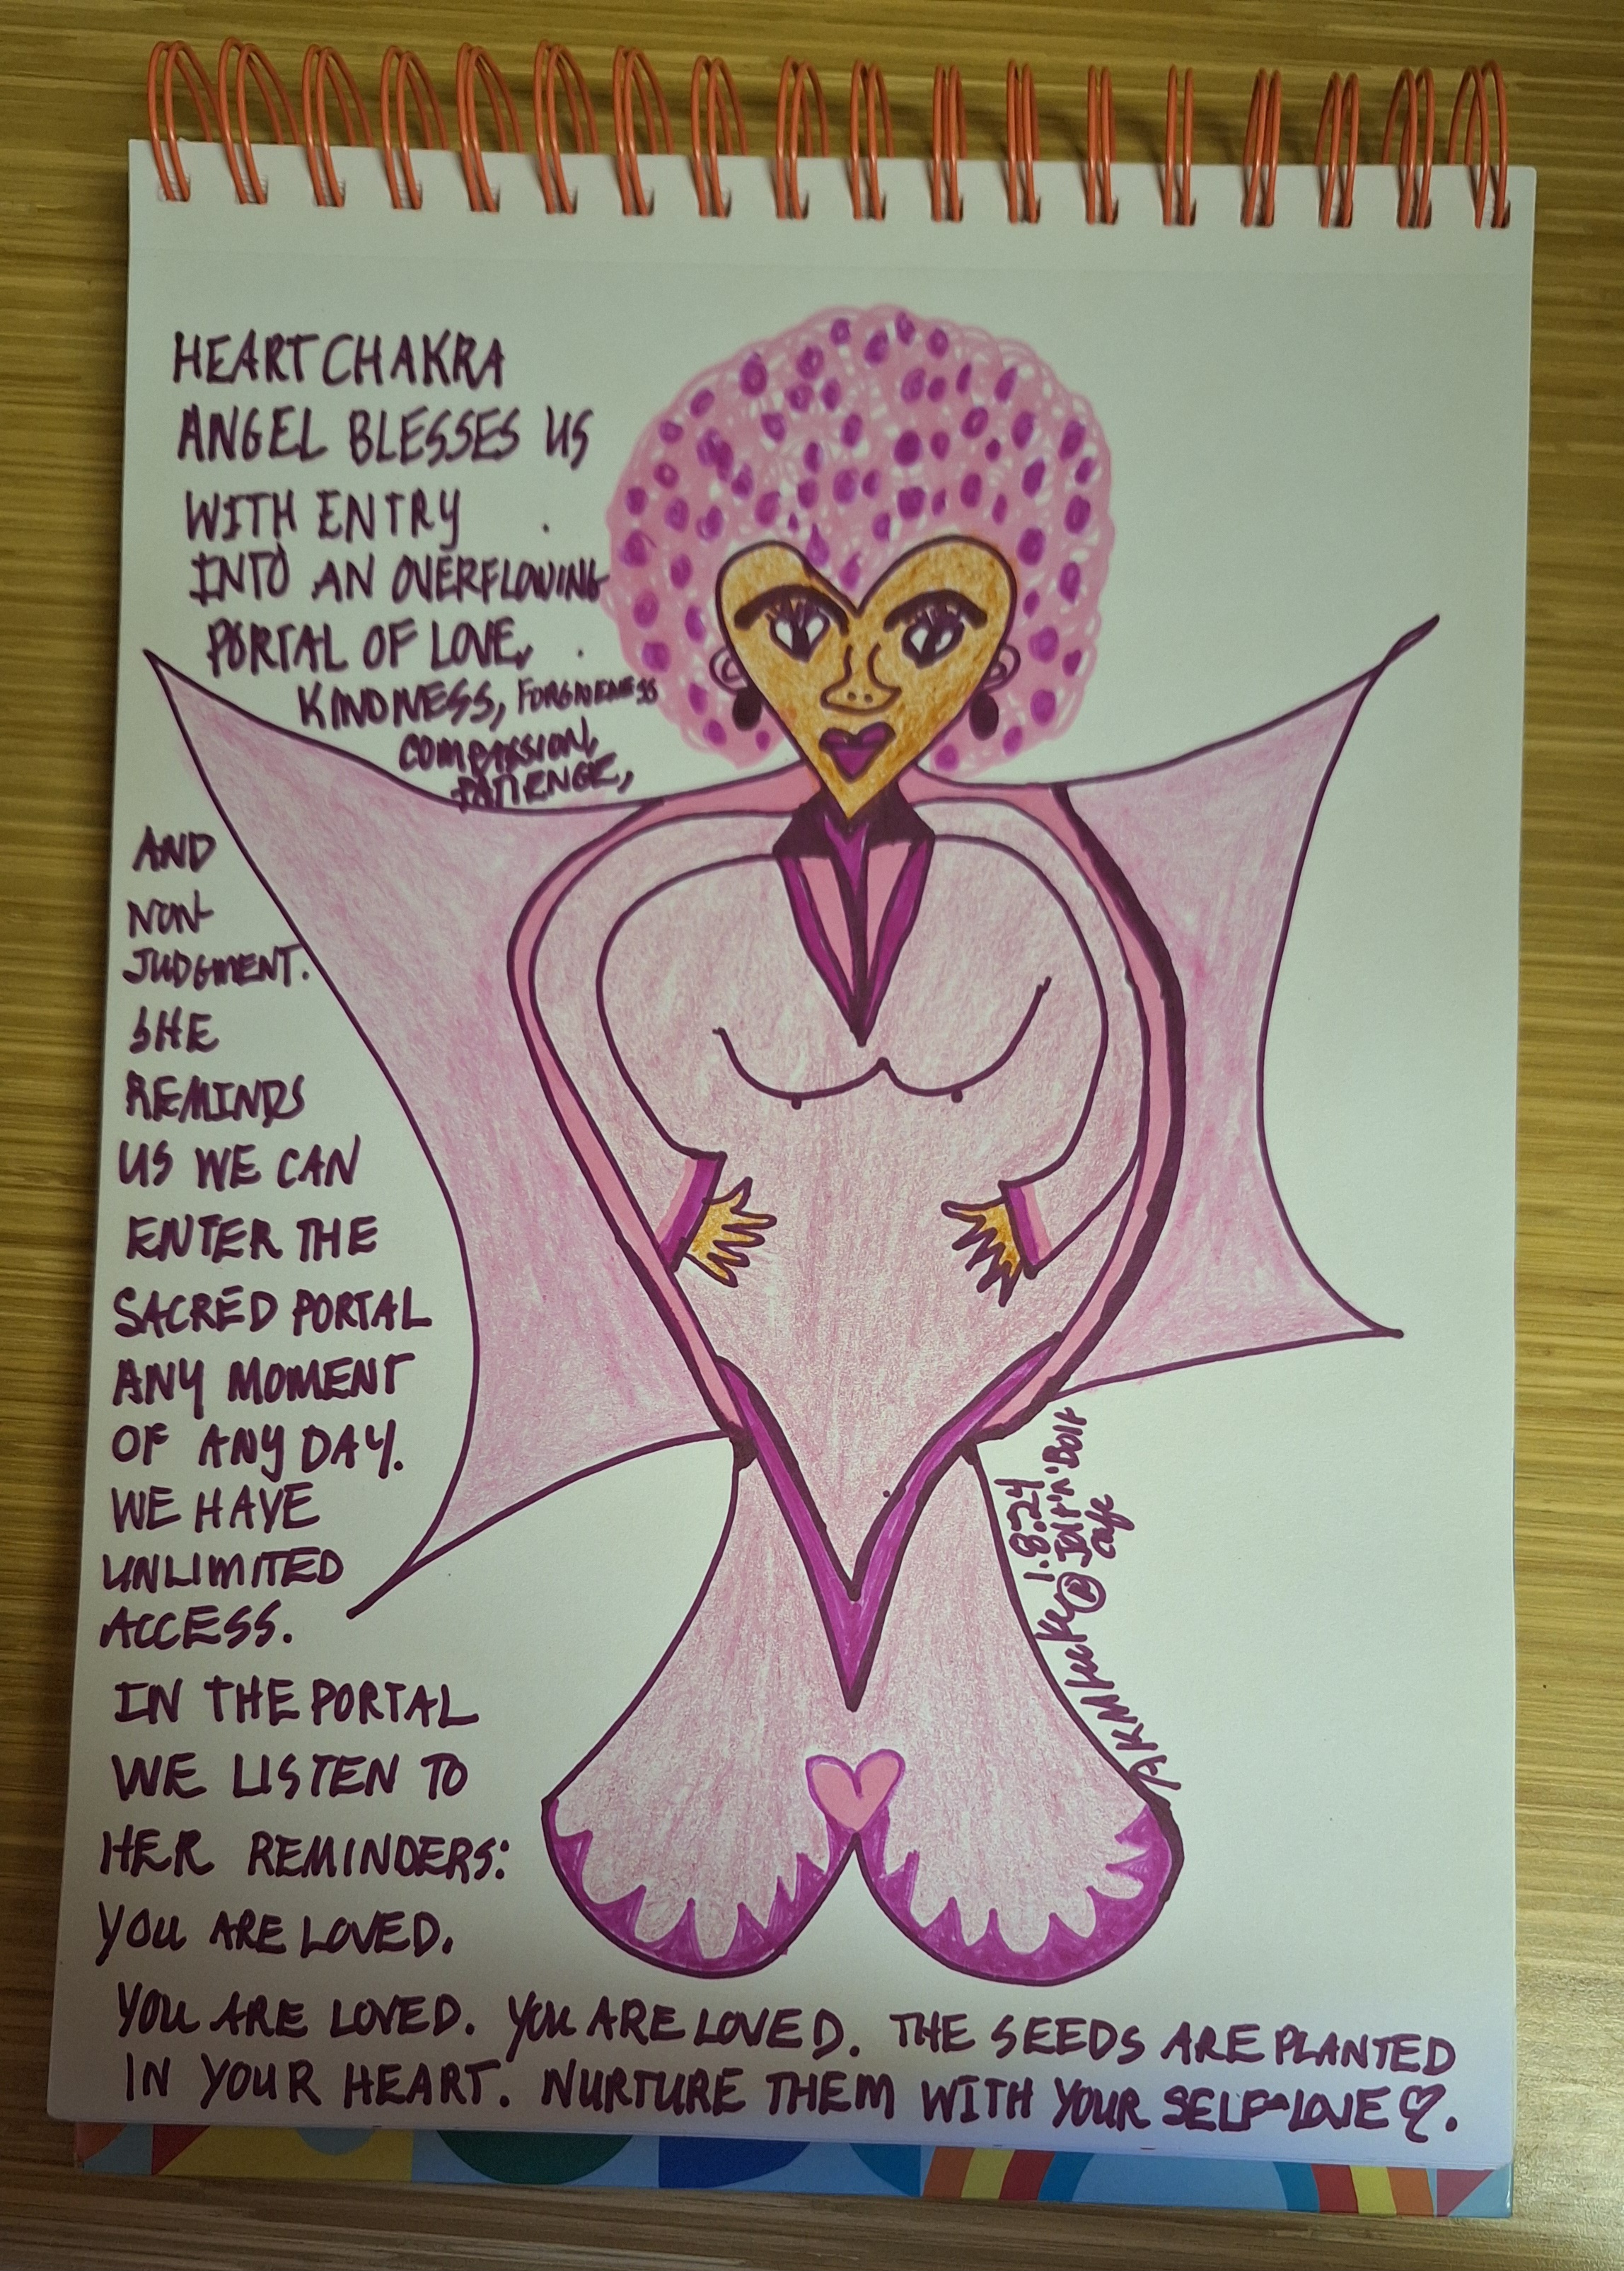 HEART CHAKRA
ANGEL BLESSES US
WITH ENTRY
INTO AN OVERFLOWING
PORTAL OF LOVE,
KINDNESS, FORGIVENESS
COMPASSION,
PATIENCE,
AND
NON-
JUDGMENT.
SHE
REMINDS
US WE CAN
ENTER THE
SACRED PORTAL
ANY MOMENT
OF ANY DAY.
WE HAVE
UNLIMITED
ACCESS.
IN THE PORTAL
WE LISTEN TO
HER REMINDERS:
YOU ARE LOVED.
YOU ARE LOVED. YOU ARE LOVED. THE SEEDS ARE PLANTED
IN YOUR HEART. NURTURE THEM WITH YOUR SELF-LOVE ♡.
1.8.24
@ Jolt'n'Bolt
Cafe